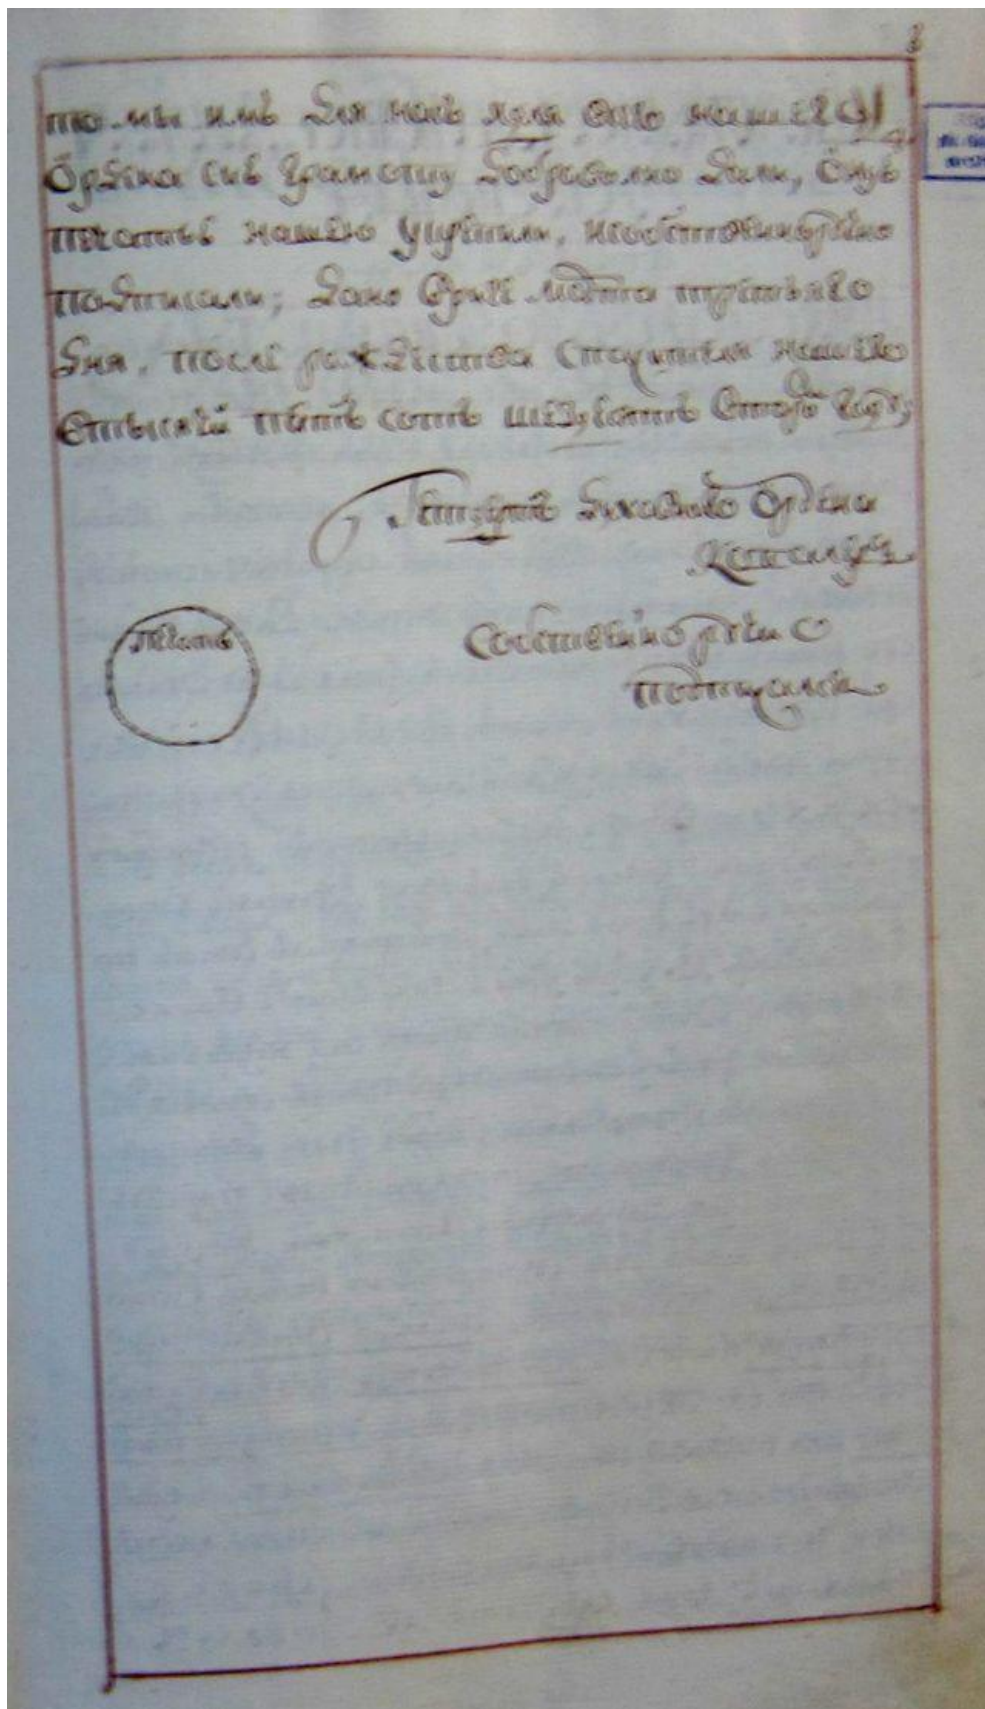 то мы имъ для насъ и для всего нашего
Ордена сию грамоту добровольно дали, оную
печатью нашею укрепили, и собственноручно
подписали; дано в риге марта третьяго
дня, после рождества спасителя нашего
втысячи пять сотъ шездесятъ втораго году;
готгартъ духовного Ордена
Собственноручно
подписался
печать